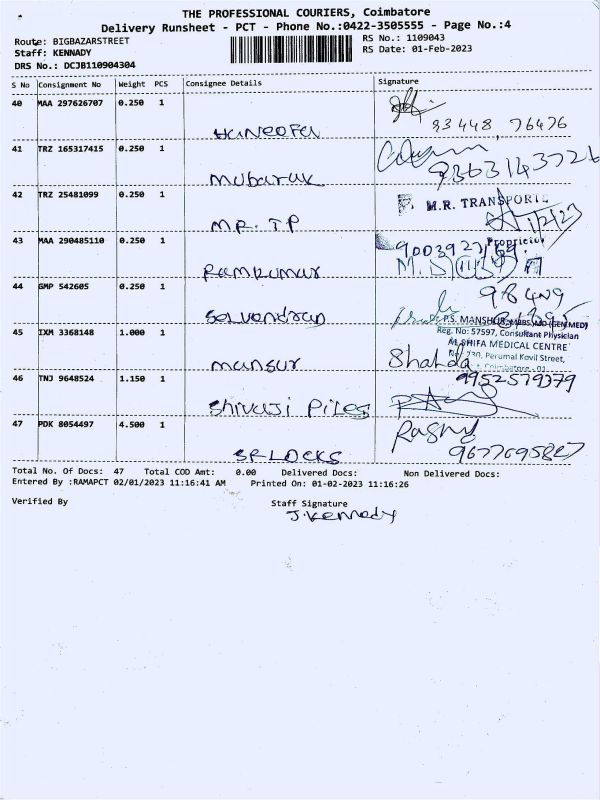 THE PROFESSIONAL COURIERS, Coimbatore
Delivery Runsheet - PCT - Phone No.:0422-3505555 - Page No.:4
Route: BIGBAZARSTREET
RS No.: 1109043
Staff: KENNADY
RS Date: 01-Feb-2023
DRS No.: DCJB110904304
S No Consignment No Weight PCS Consignee Details Signature
40 MAA 297626707 0.250 1
Haneefa 93448 76476
41 TRZ 165317415 0.250 1
Mubaruk 9363143726
42 TRZ 25481099 0.250 1
M.R. TRANSPORTS
MR. TP 1/2/23
Proprietor
43 MAA 290485110 0.250 1
Ramkumar
44 GMP 542605 0.250 1
Selvendran
Dr. P.S. MANSHUR, MBBS, MD (GEN MED)
Reg. No: 57597, Consultant Physician
45 IXM 3368148 1.000 1
AL SHIFA MEDICAL CENTRE
No: 730, Perumal Kovil Street,
Coimbatore - 01
mansur Shahda
46 TNJ 9648524 1.150 1
9952579379
Shivaji Piles
47 PDK 8054497 4.500 1
SR LOCKS
Total No. Of Docs: 47 Total COD Amt: 0.00 Delivered Docs: Non Delivered Docs:
Entered By :RAMAPCT 02/01/2023 11:16:41 AM Printed On: 01-02-2023 11:16:26
Verified By Staff Signature
J. Kennady